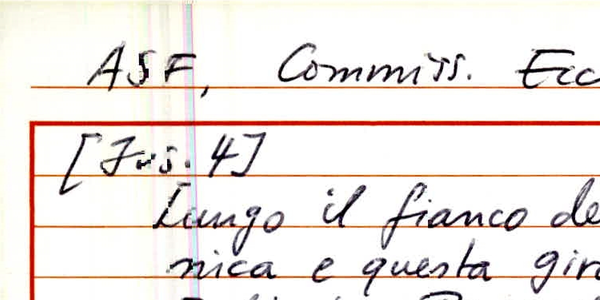 ASF, Commiss. Ecc
[Ins. 4]
Lungo il fianco de
nica e questa gir